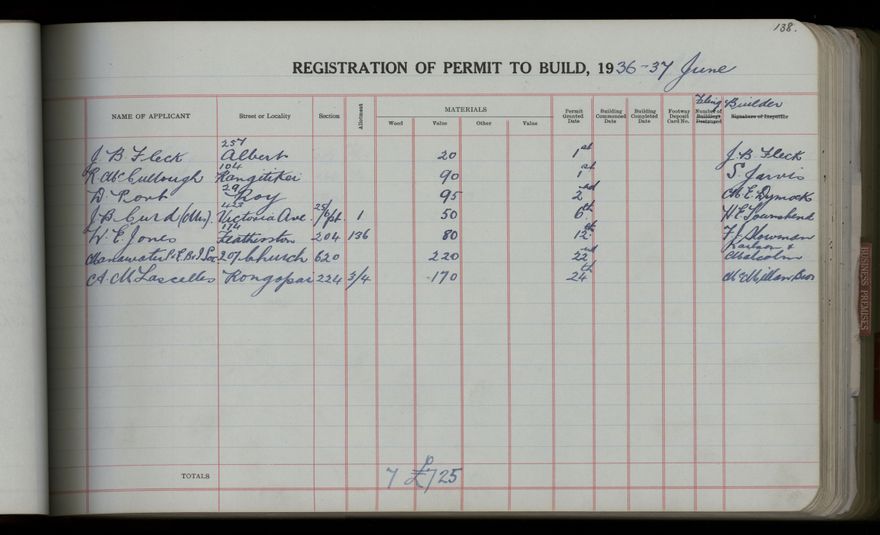 138.
REGISTRATION OF PERMIT TO BUILD, 1936-37 June
NAME OF APPLICANT Street or Locality Section Allotment MATERIALS Permit Granted Date Building Commenced Date Building Completed Date Footway Deposit Card No. Number of Buildings Builder Signature of Inspector
Wood Value Other Value
257
J. B. Fleck Albert 20 1st J. B. Fleck
104
R McCullough Rangitikei 90 1st S. Jarvis
29
D. Roy 95 2nd M. E. Dymock
423
J. B. Curd (Mrs). Victoria Ave. 1 50 6th H E Townshend
174
W. E. Jones Featherston 204 136 80 12th F. J.
Manawatu P. E. B & I Soc. 207 Church 620 220 22nd Karlson & Malcolm
A. M. Lascelles Rongopai 224 3/4 170 24th McMillan Bros
TOTALS 7 £725
BUSINESS PREMISES